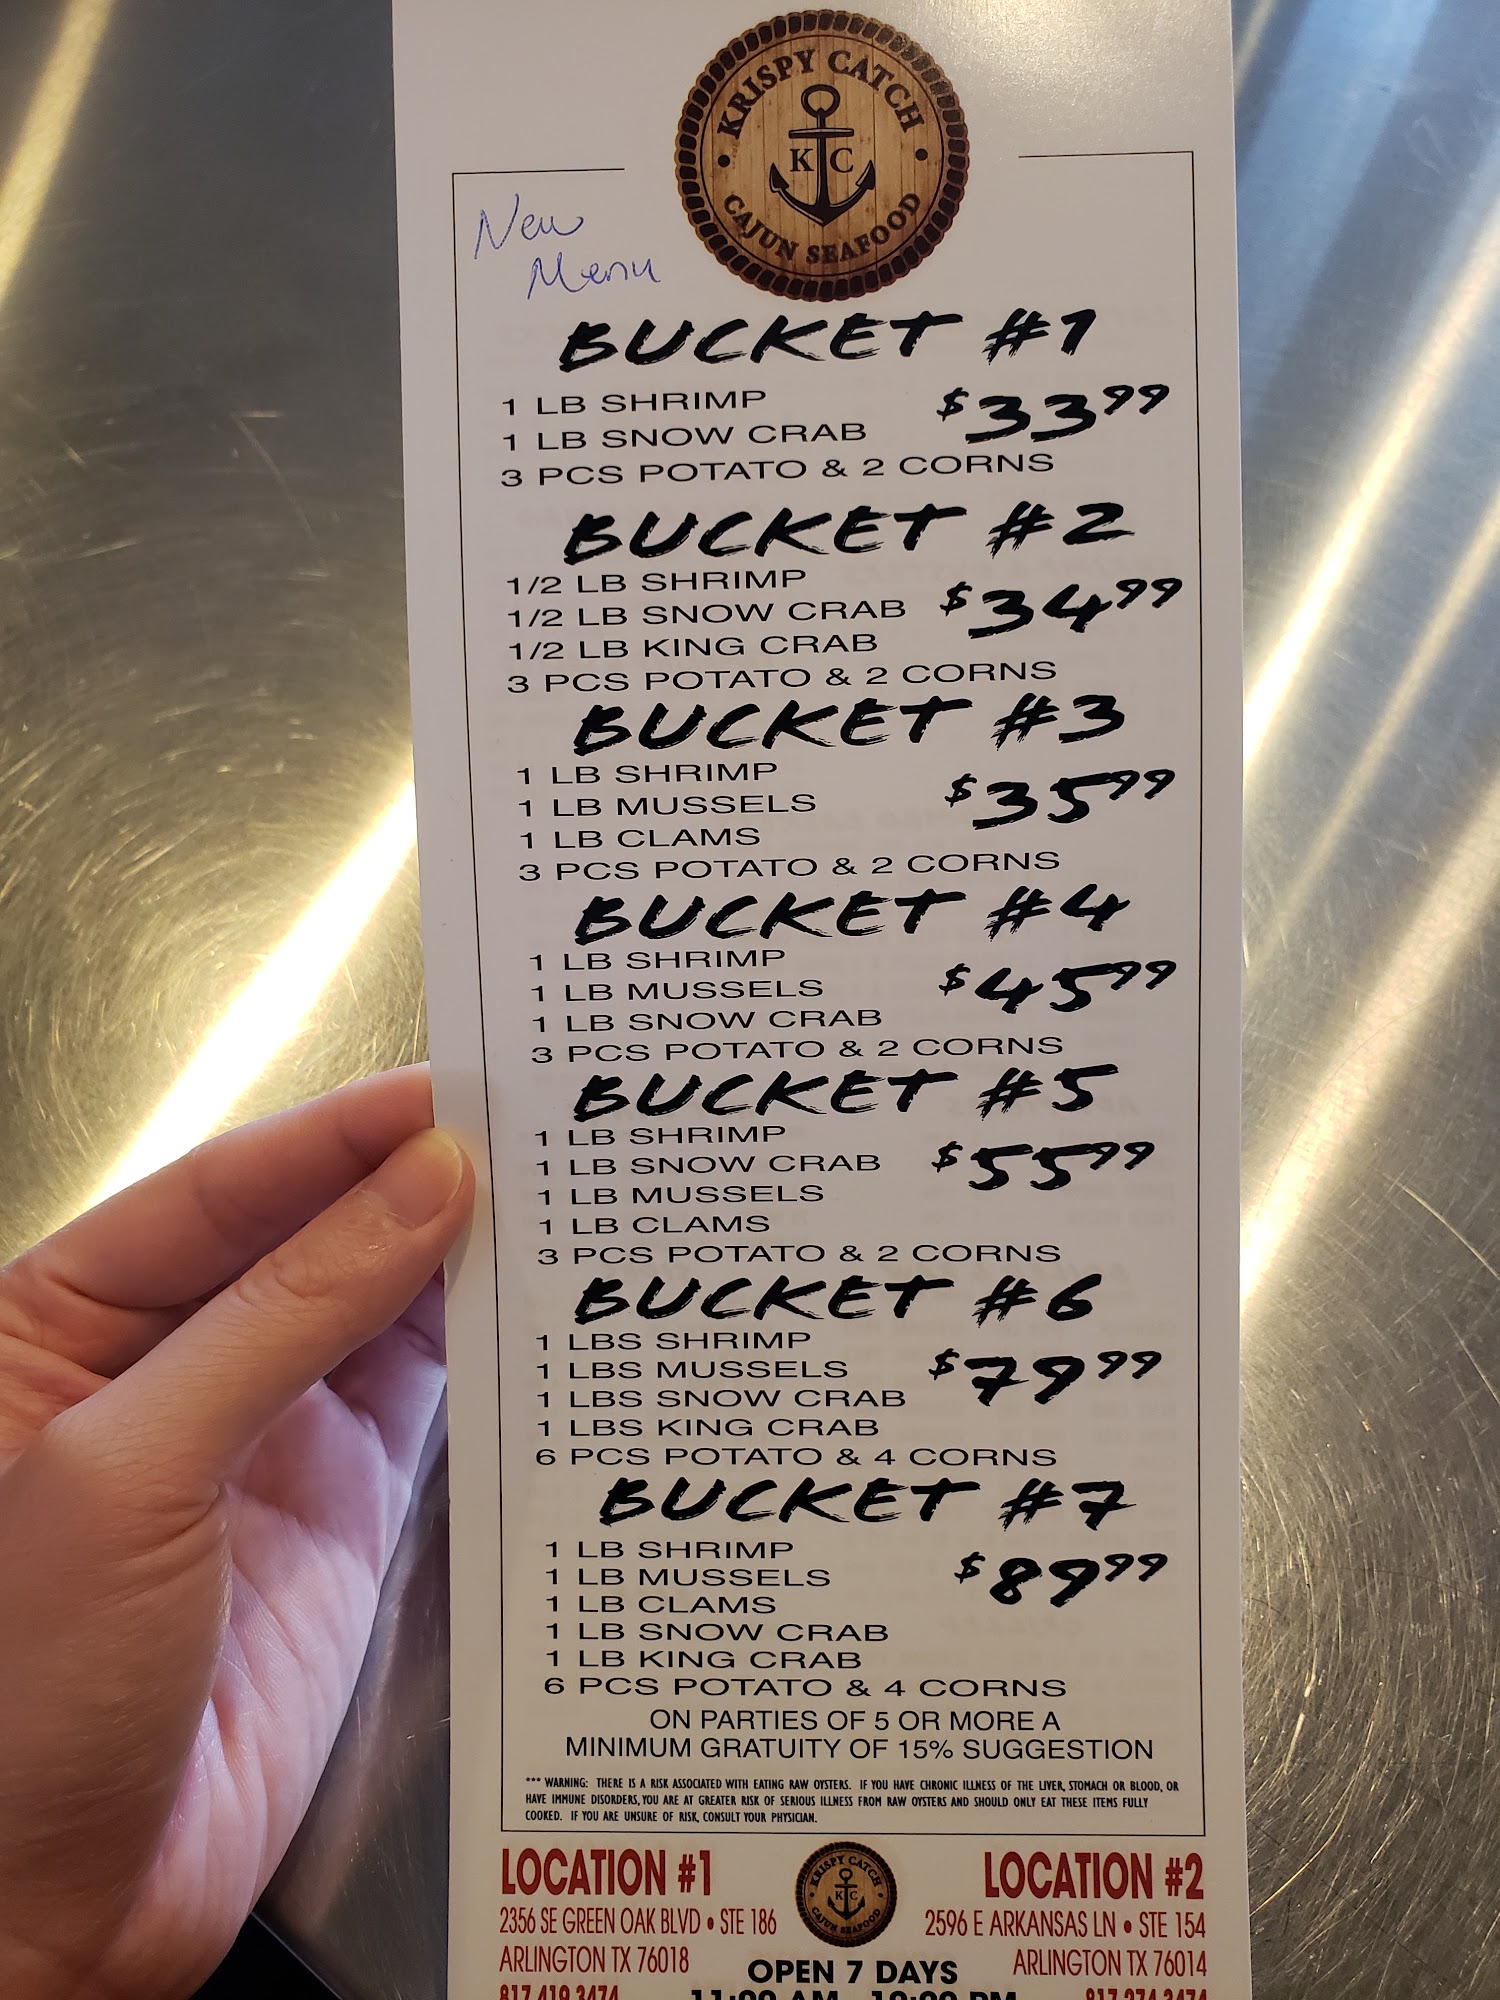 KRISPY CATCH
K C
CAJUN SEAFOOD
New
Menu
BUCKET #1
1 LB SHRIMP
$33.99
1 LB SNOW CRAB
3 PCS POTATO & 2 CORNS
BUCKET #2
1/2 LB SHRIMP
1/2 LB SNOW CRAB
$34.99
1/2 LB KING CRAB
3 PCS POTATO & 2 CORNS
BUCKET #3
1 LB SHRIMP
1 LB MUSSELS
$35.99
1 LB CLAMS
3 PCS POTATO & 2 CORNS
BUCKET #4
1 LB SHRIMP
1 LB MUSSELS
$45.99
1 LB SNOW CRAB
3 PCS POTATO & 2 CORNS
BUCKET #5
1 LB SHRIMP
1 LB SNOW CRAB
$55.99
1 LB MUSSELS
1 LB CLAMS
3 PCS POTATO & 2 CORNS
BUCKET #6
1 LBS SHRIMP
1 LBS MUSSELS
$79.99
1 LBS SNOW CRAB
1 LBS KING CRAB
6 PCS POTATO & 4 CORNS
BUCKET #7
1 LB SHRIMP
1 LB MUSSELS
$89.99
1 LB CLAMS
1 LB SNOW CRAB
1 LB KING CRAB
6 PCS POTATO & 4 CORNS
ON PARTIES OF 5 OR MORE A
MINIMUM GRATUITY OF 15% SUGGESTION
*** WARNING: THERE IS A RISK ASSOCIATED WITH EATING RAW OYSTERS. IF YOU HAVE CHRONIC ILLNESS OF THE LIVER, STOMACH OR BLOOD, OR
HAVE IMMUNE DISORDERS, YOU ARE AT GREATER RISK OF SERIOUS ILLNESS FROM RAW OYSTERS AND SHOULD ONLY EAT THESE ITEMS FULLY
COOKED. IF YOU ARE UNSURE OF RISK, CONSULT YOUR PHYSICIAN.
LOCATION #1
2356 SE GREEN OAK BLVD • STE 186
ARLINGTON TX 76018
817.419.3474
KRISPY CATCH
K C
CAJUN SEAFOOD
OPEN 7 DAYS
11:00 AM - 10:00 PM
LOCATION #2
2596 E ARKANSAS LN • STE 154
ARLINGTON TX 76014
817.274.3474